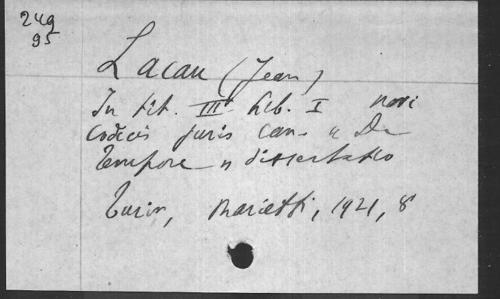 249
95
Lacau (Jean)
In tit. III lib. I novi
Codicis juris can. « De
Tempore » dissertatio
Turin, Marietti, 1921, 8